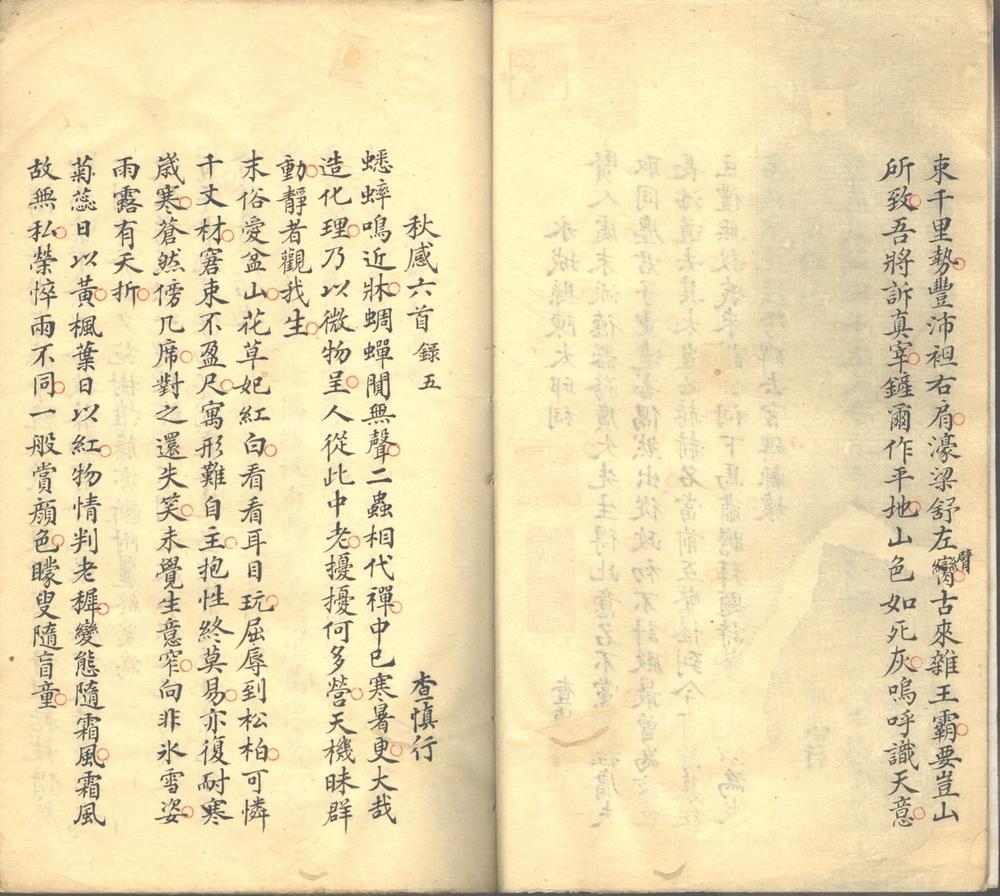 東千里勢豐沛袒右肩濠梁舒左臠臂古來雜王霸要豈山
所致吾將訴真宰鏟爾作平地山色如死灰嗚呼識天意
秋感六首 錄五
查慎行
蟋蟀鳴近牀蜩蟬閴無聲二蟲相代禪中已寒暑更大哉
造化理乃以微物呈人從此中老擾擾何多營天機昧群
動靜者觀我生
末俗愛盆山花草妃紅白看看耳目玩屈辱到松柏可憐
千丈材窘束不盈尺寓形難自主抱性終莫易亦復耐寒
歳寒蒼然傍几席對之還失笑未覺生意窄向非氷雪姿
雨露有夭折
菊蕊日以黃楓葉日以紅物情判老穉變態隨霜風霜風
故無私榮悴雨不同一般賞顏色矇叟隨盲童